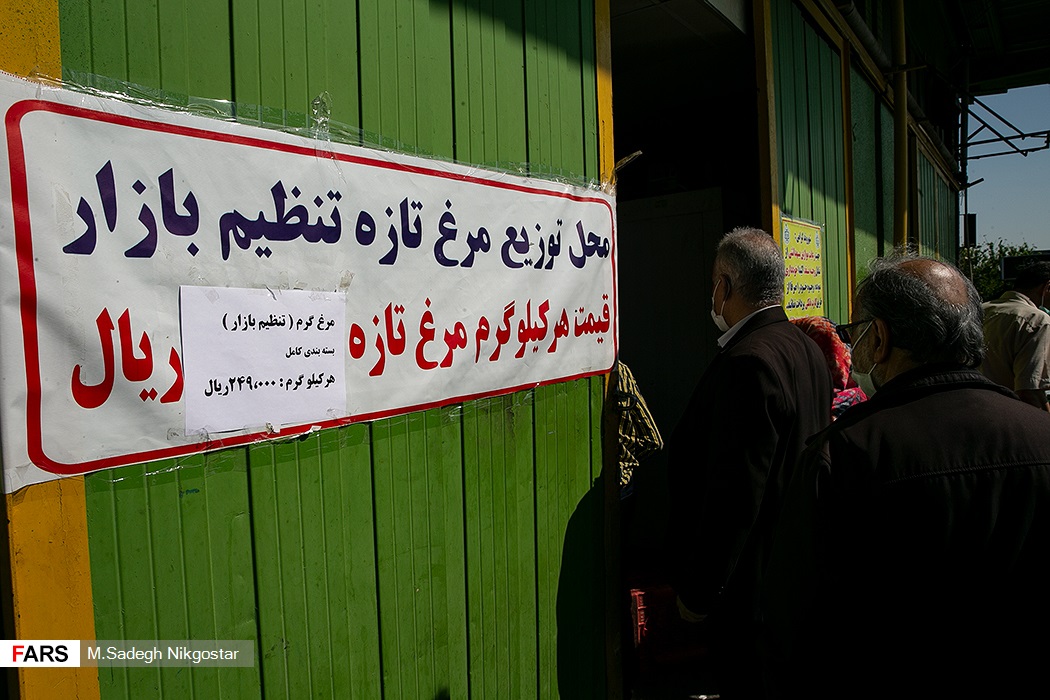 محل توزیع مرغ تازه تنظیم بازار
قیمت هر کیلوگرم مرغ تازه
ریال
مرغ گرم ( تنظیم بازار )
بسته بندی کامل
هرکیلو گرم : ۲۴۹،۰۰۰ریال
FARS
M.Sadegh Nikgostar